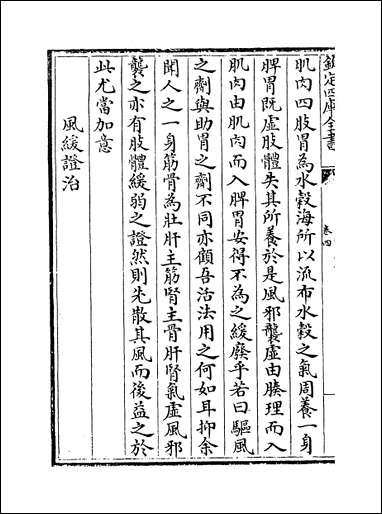 欽定四庫全書
卷四
肌肉四肢胃為水穀海所以流布水穀之氣周養一身
脾胃既虛肢體失其所養於是風邪襲虛由腠理而入
肌肉由肌肉而入脾胃安得不為之緩廢乎若曰驅風
之劑與助胃之劑不同亦顧吾活法用之何如耳抑余
聞人之一身筋骨為壯肝主筋腎主骨肝腎氣虛風邪
襲之亦有肢體緩弱之證然則先散其風而後益之於
此尤當加意
風緩證治